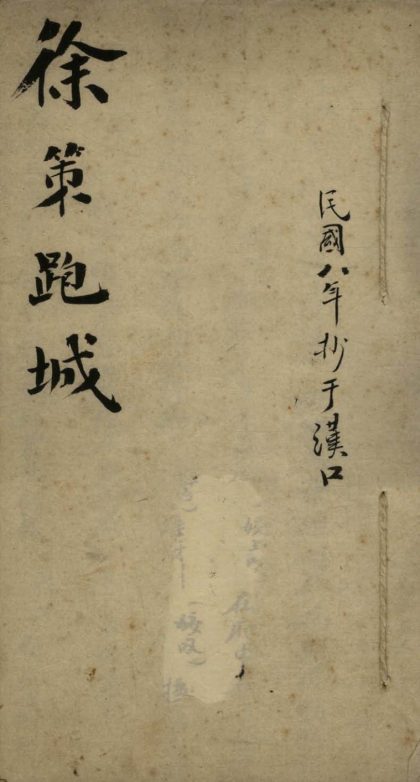 徐策跑城
民國八年抄于漢口